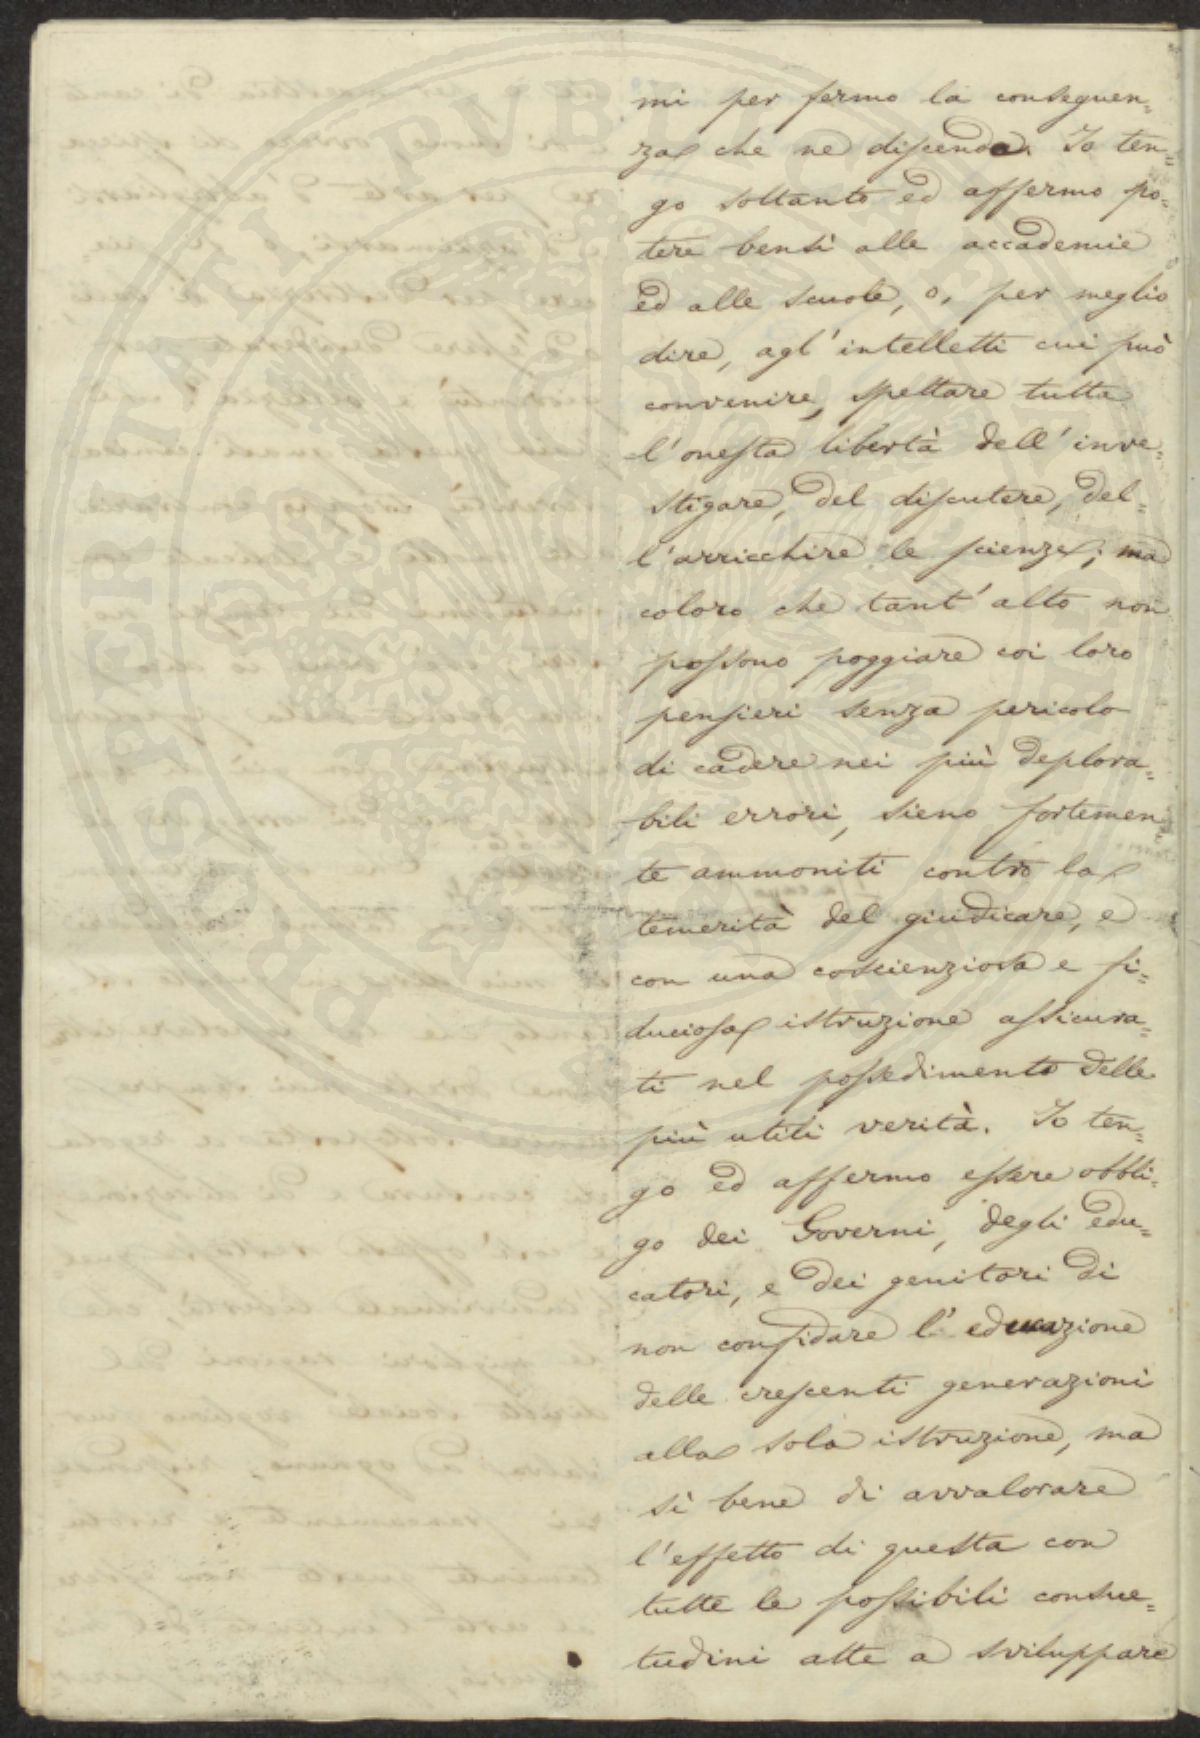 mi per fermo la conseguen=
za che ne discenda. Io ten=
go soltanto ed affermo po=
tere bensì alle accademie
ed alle scuole, o, per meglio
dire, agl'intelletti cui può
convenire, spettare tutta
l'onesta libertà dell'inve=
stigare, del discutere, del=
l'arricchire le scienze; ma
coloro che tant'alto non
possono poggiare coi loro
pensieri senza pericolo
di cadere nei più deplora=
bili errori, sieno fortemen=
te ammoniti contro la
temerità del giudicare, e
con una coscienziosa e fi=
duciosa istruzione assicura=
ti nel possedimento delle
più utili verità. Io ten=
go ed affermo essere obbli=
go dei Governi, degli edu=
catori, e dei genitori di
non confidare l'educazione
delle crescenti generazioni
alla sola istruzione, ma
sì bene di avvalorare
l'effetto di questa con
tutte le possibili consue=
tudini atte a sviluppare
PROSPERITATI PVBLICAE